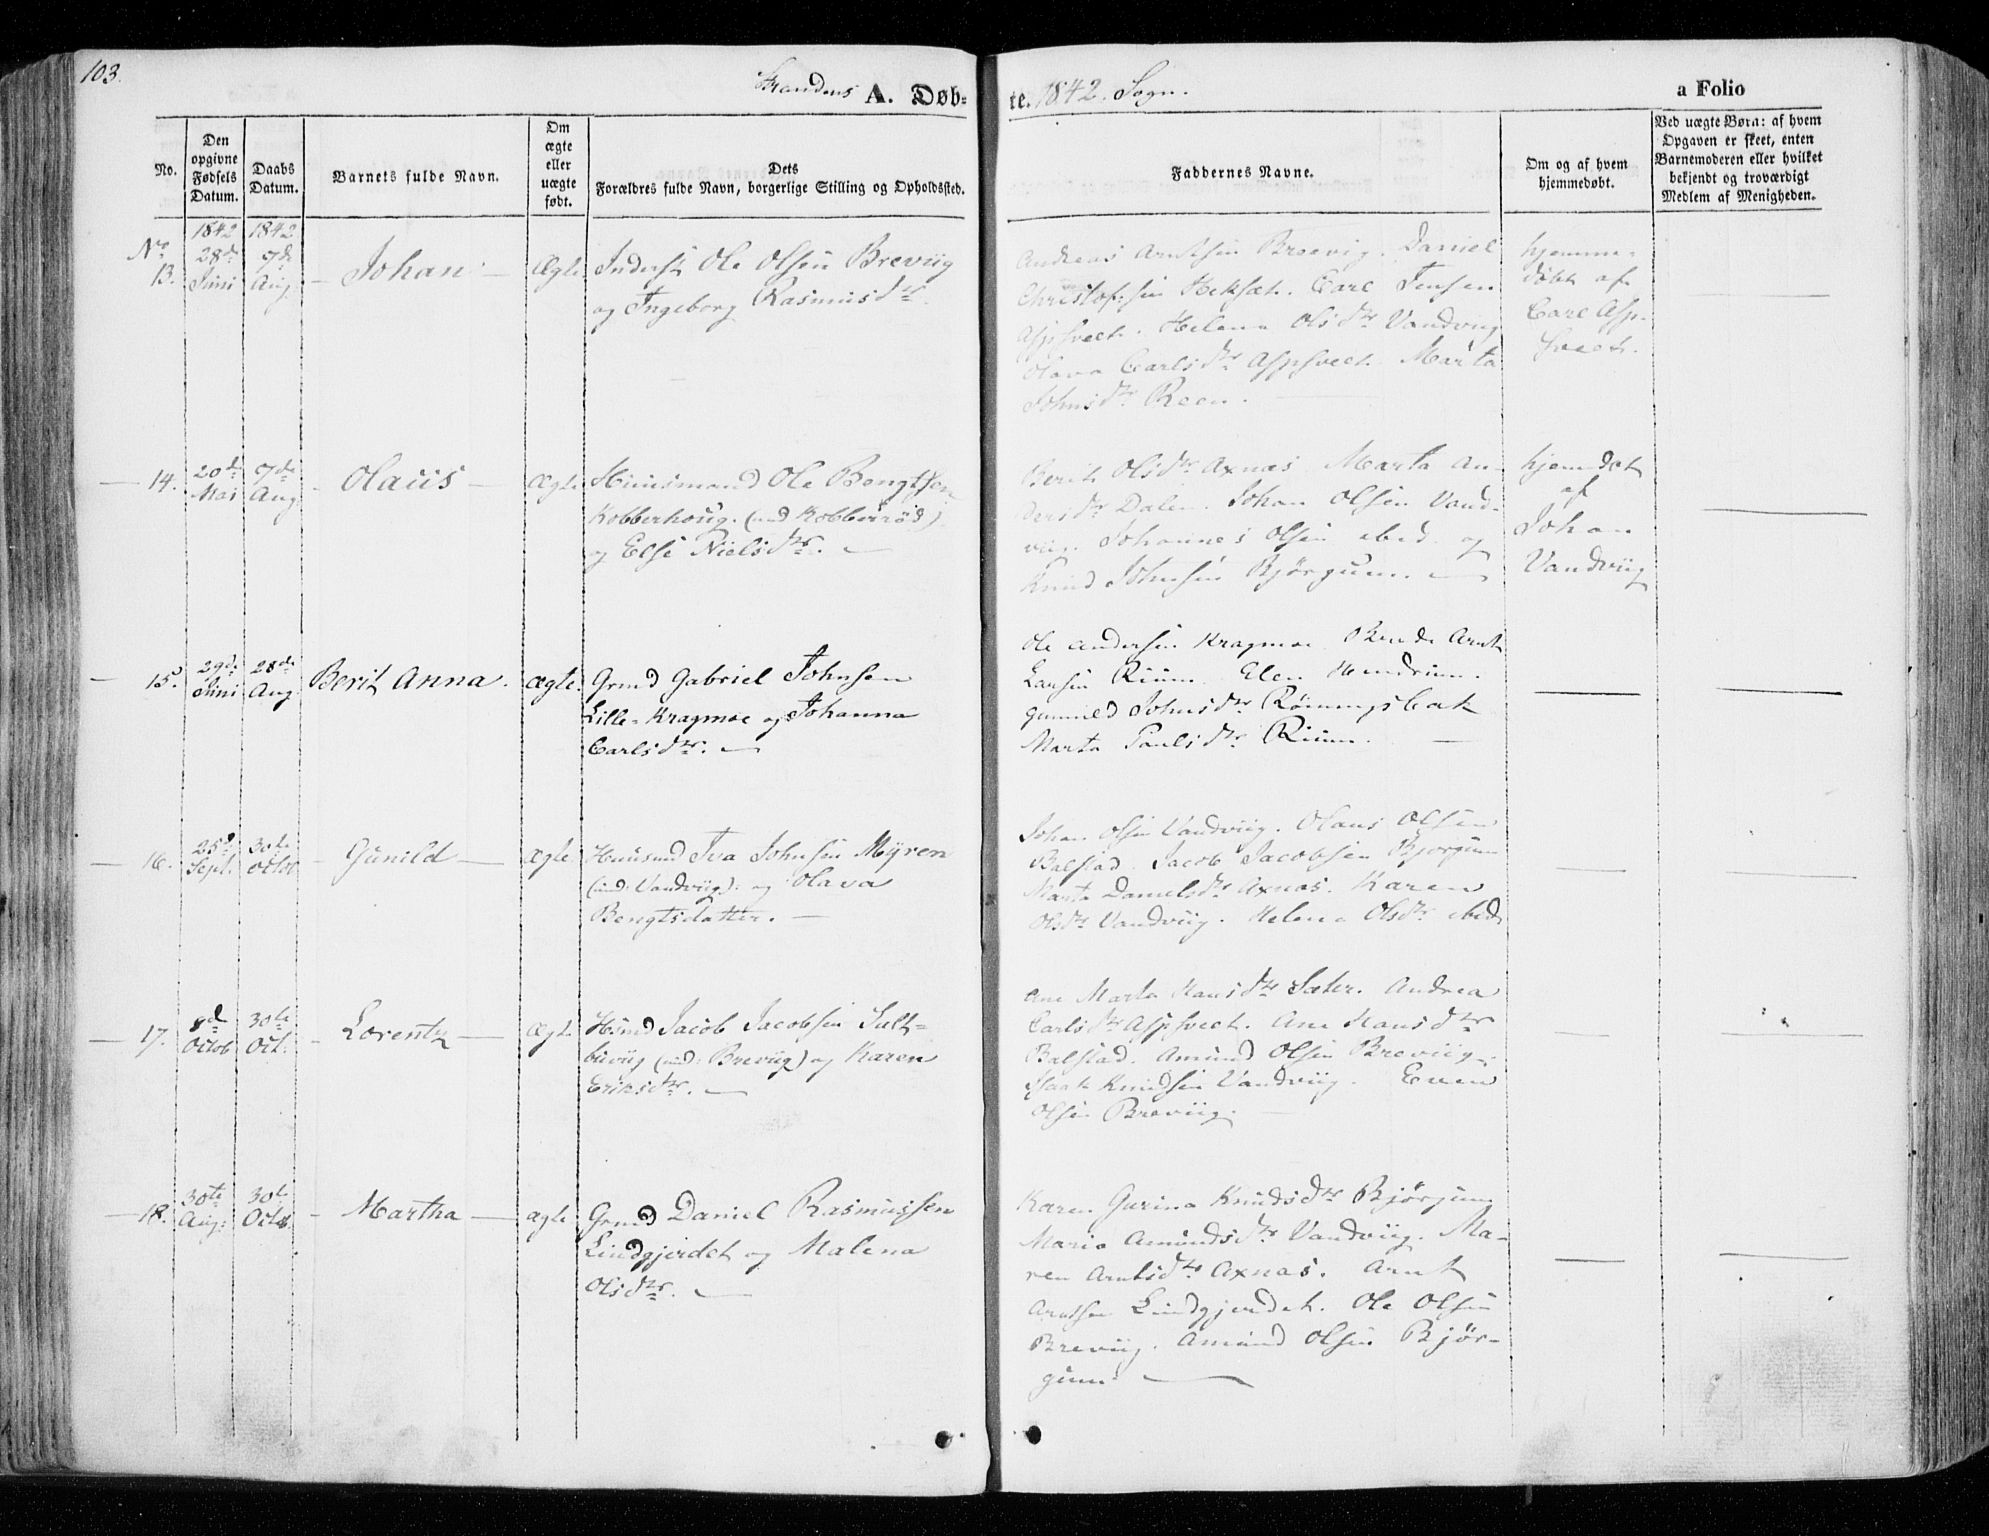 103.
Strandens A. Døb-
te. 1842. Sogn.
a Folio
No.
Den
opgivne
Fødsels
Datum.
Daabs
Datum.
Barnets fulde Navn.
Om
ægte
eller
uægte
født.
Dets
Forældres fulde Navn, borgerlige Stilling og Opholdssted.
Faddernes Navne.
Om og af hvem
hjemmedøbt.
Ved uægte Børn: af hvem
Opgaven er skeet, enten
Barnemoderen eller hvilket
bekjendt og troværdigt
Medlem af Menigheden.
1842 1842
No
13.
28de
Juni
7de
Aug.
Johan
Ægte
Inderst Ole Olsen Breviig
og Ingeborg Rasmusdtr.
Andreas Arntsen Breevig. Daniel
Christofsen Heksæt. Carl Jensen
Aspsveet. Helena Olsdtr Vandviig
Olava Carlsdtr Aspsveet. Marta
Johnsdtr Reen.
hjemme-
døbt af
Carl Asp-
sveet.
14.
20de
Mai
7de
Aug.
Olaus
Ægte
Huusmand Ole Bengtsen
Kobberhoug. (und Kobberrød)
og Else Nielsdtr.
Berit Olsdtr Axnæs Marta An-
dersdtr Dalen. Johan Olsen Vand-
viig. Johannes Olsen ibid. og
Knud Johnsen Bjørgum.
hjemdøt
af
Johan
Vandviig
15.
29de
Juni
28de
Aug.
Berit Anna.
Ægte.
Grmd Gabriel Johnsen
Lille-Kragmoe og Johanna
Carlsdtr.
Ole Andersen Kragmoe Arnt
Larsen Riium. Elen
Gunnild Johnsdtr Rønningsbak
Marta Paulsdtr Riium.
16.
25de
Sept.
30te
Octob
Gunild
Ægte
Huusmd Iva Johnsen Myren
(und: Vandviig). og Olava
Bengtsdatter.
Johan Olsen Vandviig. Olaus Olsen
Balstad. Jacob Jacobsen Bjørgum
Marta Danielsdtr Axnæs. Karen
Olsdtr Vandviig. Helena Olsdtr ibid
17.
8de
Octob
30te
Oct.
Lorentz
Ægte
Hsmd Jacob Jacobsen Sult-
(und: Breviig) og Karen
Eriksdtr.
Ane Marta Hansdtr Sæter. Andrea
Carlsdtr Aspsveet. Ane Hansdtr
Balstad. Amund Olsen Breviig.
Isaak Knudsen Vandviig. Even
Olsen Breviig.
18.
30te
Aug:
30te
Octb
Martha
ægte
Grmd Daniel Rasmussen
Lindgjerdet og Malena
Olsdtr.
Karen Gurina Knudsdtr Bjørgum
Maria Amundsdtr Vandviig. Ma-
ren Arntsdtr Axnæs. Arnt
Arntsen Lindgjerdet. Ole Olsen
Breviig. Amund Olsen Bjør-
gum.